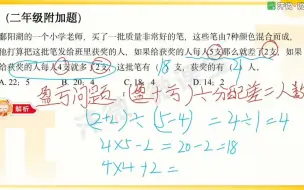 (二年级附加题)
鄱阳湖的一个小学老师,买了一批质量非常好的笔,这些笔由7种颜色混合而成,
他打算把这批笔发给班里获奖的人,如果给获奖的人每人5支那么就差了2支,如果
给获奖的人每人4支就多了2支,这批笔有(18)支,获奖的有(4)人。
22; 5 B. 20; 4 C. 18; 4 D. 14; 2
解析
盈亏问题:(盈+亏)÷分配差=人数
(2+2)÷(5-4)=4÷1=4
4×5-2=20-2=18
4×4+2=